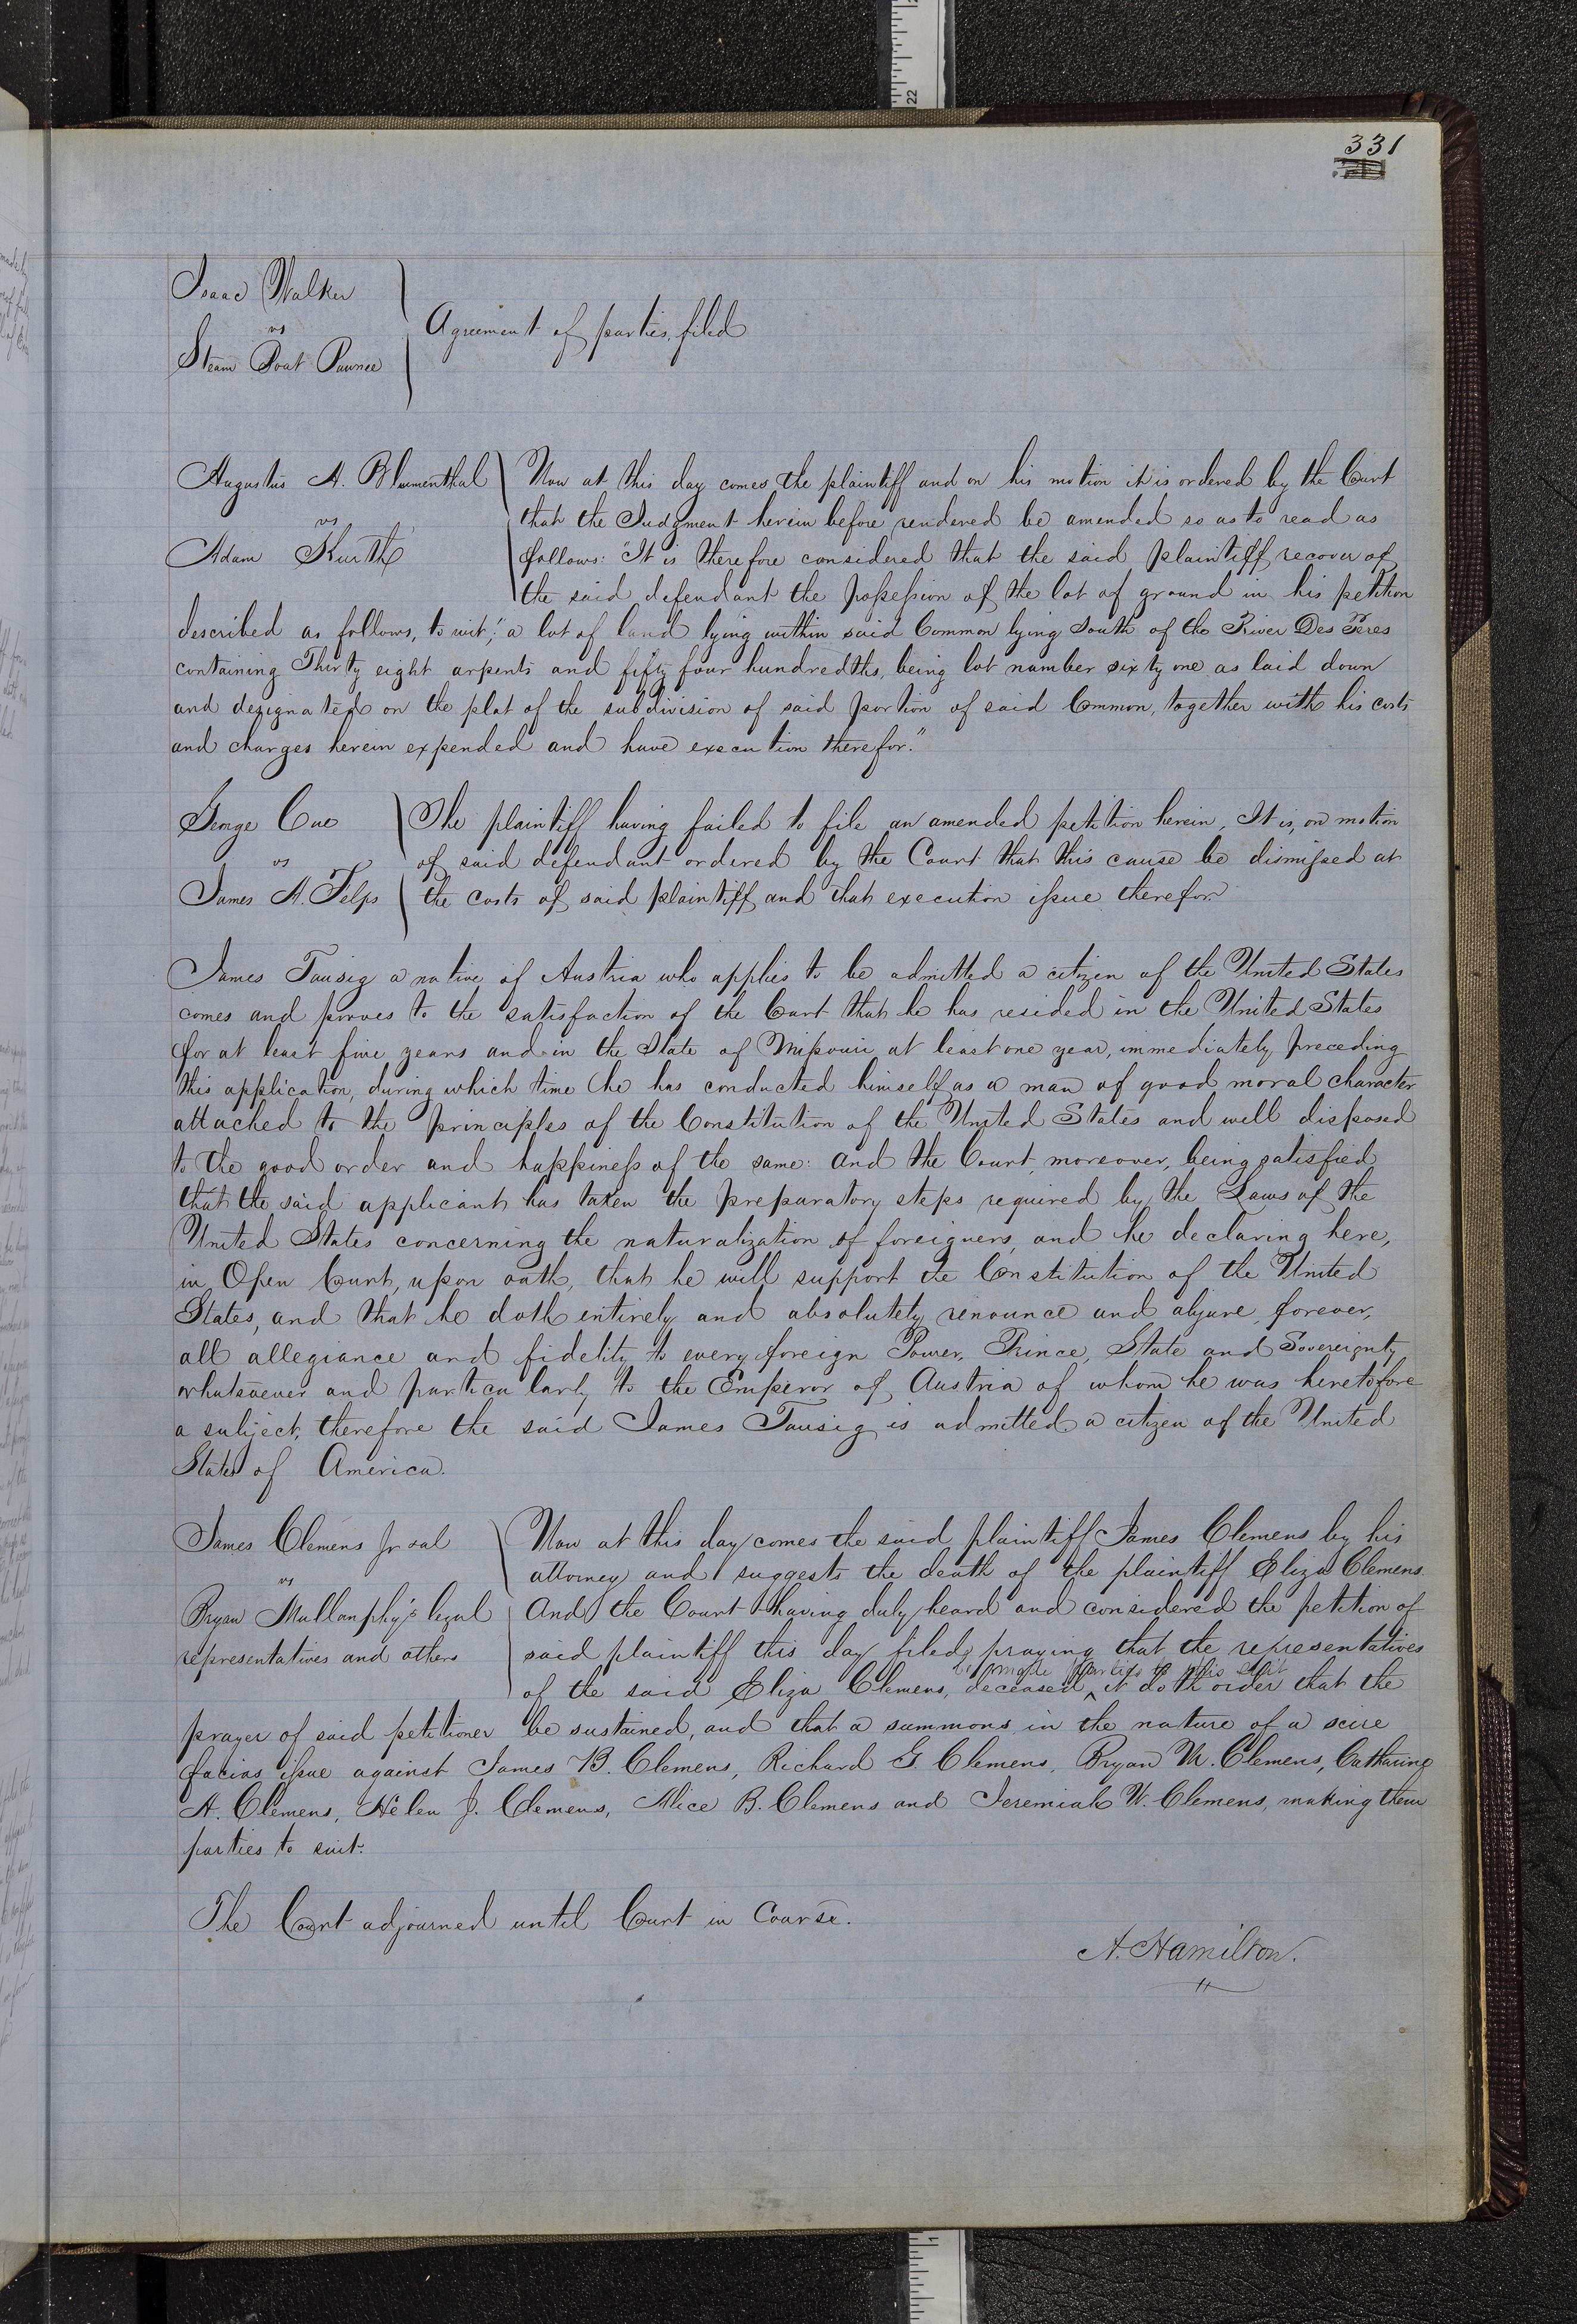 331
Isaac Walker
vs
Steam Boat Pawnee
Agreement of parties filed
Augustus A. Blumenthal
vs
Adam Kurth
Now at this day comes the plaintiff and on his motion it is ordered by the Court
that the Judgment herein before rendered be amended so as to read as
follows: "It is therefore considered that the said plaintiff recover of
the said defendant the possession of the lot of ground in his petition
described as follows, to wit; "a lot of land lying within said Common lying South of the River Des Peres
containing Thirty eight arpents and fifty four hundredths, being lot number sixty one as laid down
and designated on the plat of the subdivision of said portion of said Common, together with his costs
and charges herein expended and have execution therefor."
George Cue
vs
James A. Felps
The plaintiff having failed to file an amended petition herein, It is, on motion
of said defendant ordered by the Court that this cause be dismissed at
the costs of said plaintiff and that execution issue therefor.
James Tausig a native of Austria who applies to be admitted a citizen of the United States
comes and proves to the satisfaction of the Court that he has resided in the United States
for at least five years and in the State of Missouri at least one year, immediately preceding
this application, during which time he has conducted himself as a man of good moral character
attached to the principles of the Constitution of the United States and well disposed
to the good order and happiness of the same: and the Court, moreover, being satisfied
that the said applicant has taken the preparatory steps required by the Laws of the
United States concerning the naturalization of foreigners, and he declaring here,
in Open Court, upon oath, that he will support the Constitution of the United
States, and that he doth entirely and absolutely renounce and abjure, forever,
all allegiance and fidelity to every foreign Power, Prince, State and Sovereignty
whatsoever and particularly to the Emperor of Austria of whom he was heretofore
a subject, therefore the said James Tausig is admitted a citizen of the United
States of America.
James Clemens Jr et al
vs
Bryan Mullanphy's legal
representatives and others
Now at this day comes the said plaintiff James Clemens by his
attorney and suggests the death of the plaintiff Eliza Clemens.
And the Court having duly heard and considered the petition of
said plaintiff this day filed, praying that the representatives
be made parties to this suit
of the said Eliza Clemens, deceased, ^ it doth order that the
prayer of said petitioner be sustained, and that a summons in the nature of a scire
facias issue against James B. Clemens, Richard G. Clemens, Bryan M. Clemens, Catharine
A. Clemens, Helen J. Clemens, Alice B. Clemens and Jeremiah W. Clemens, making them
parties to suit.
The Court adjourned until Court in Course.
A. Hamilton.
22
1